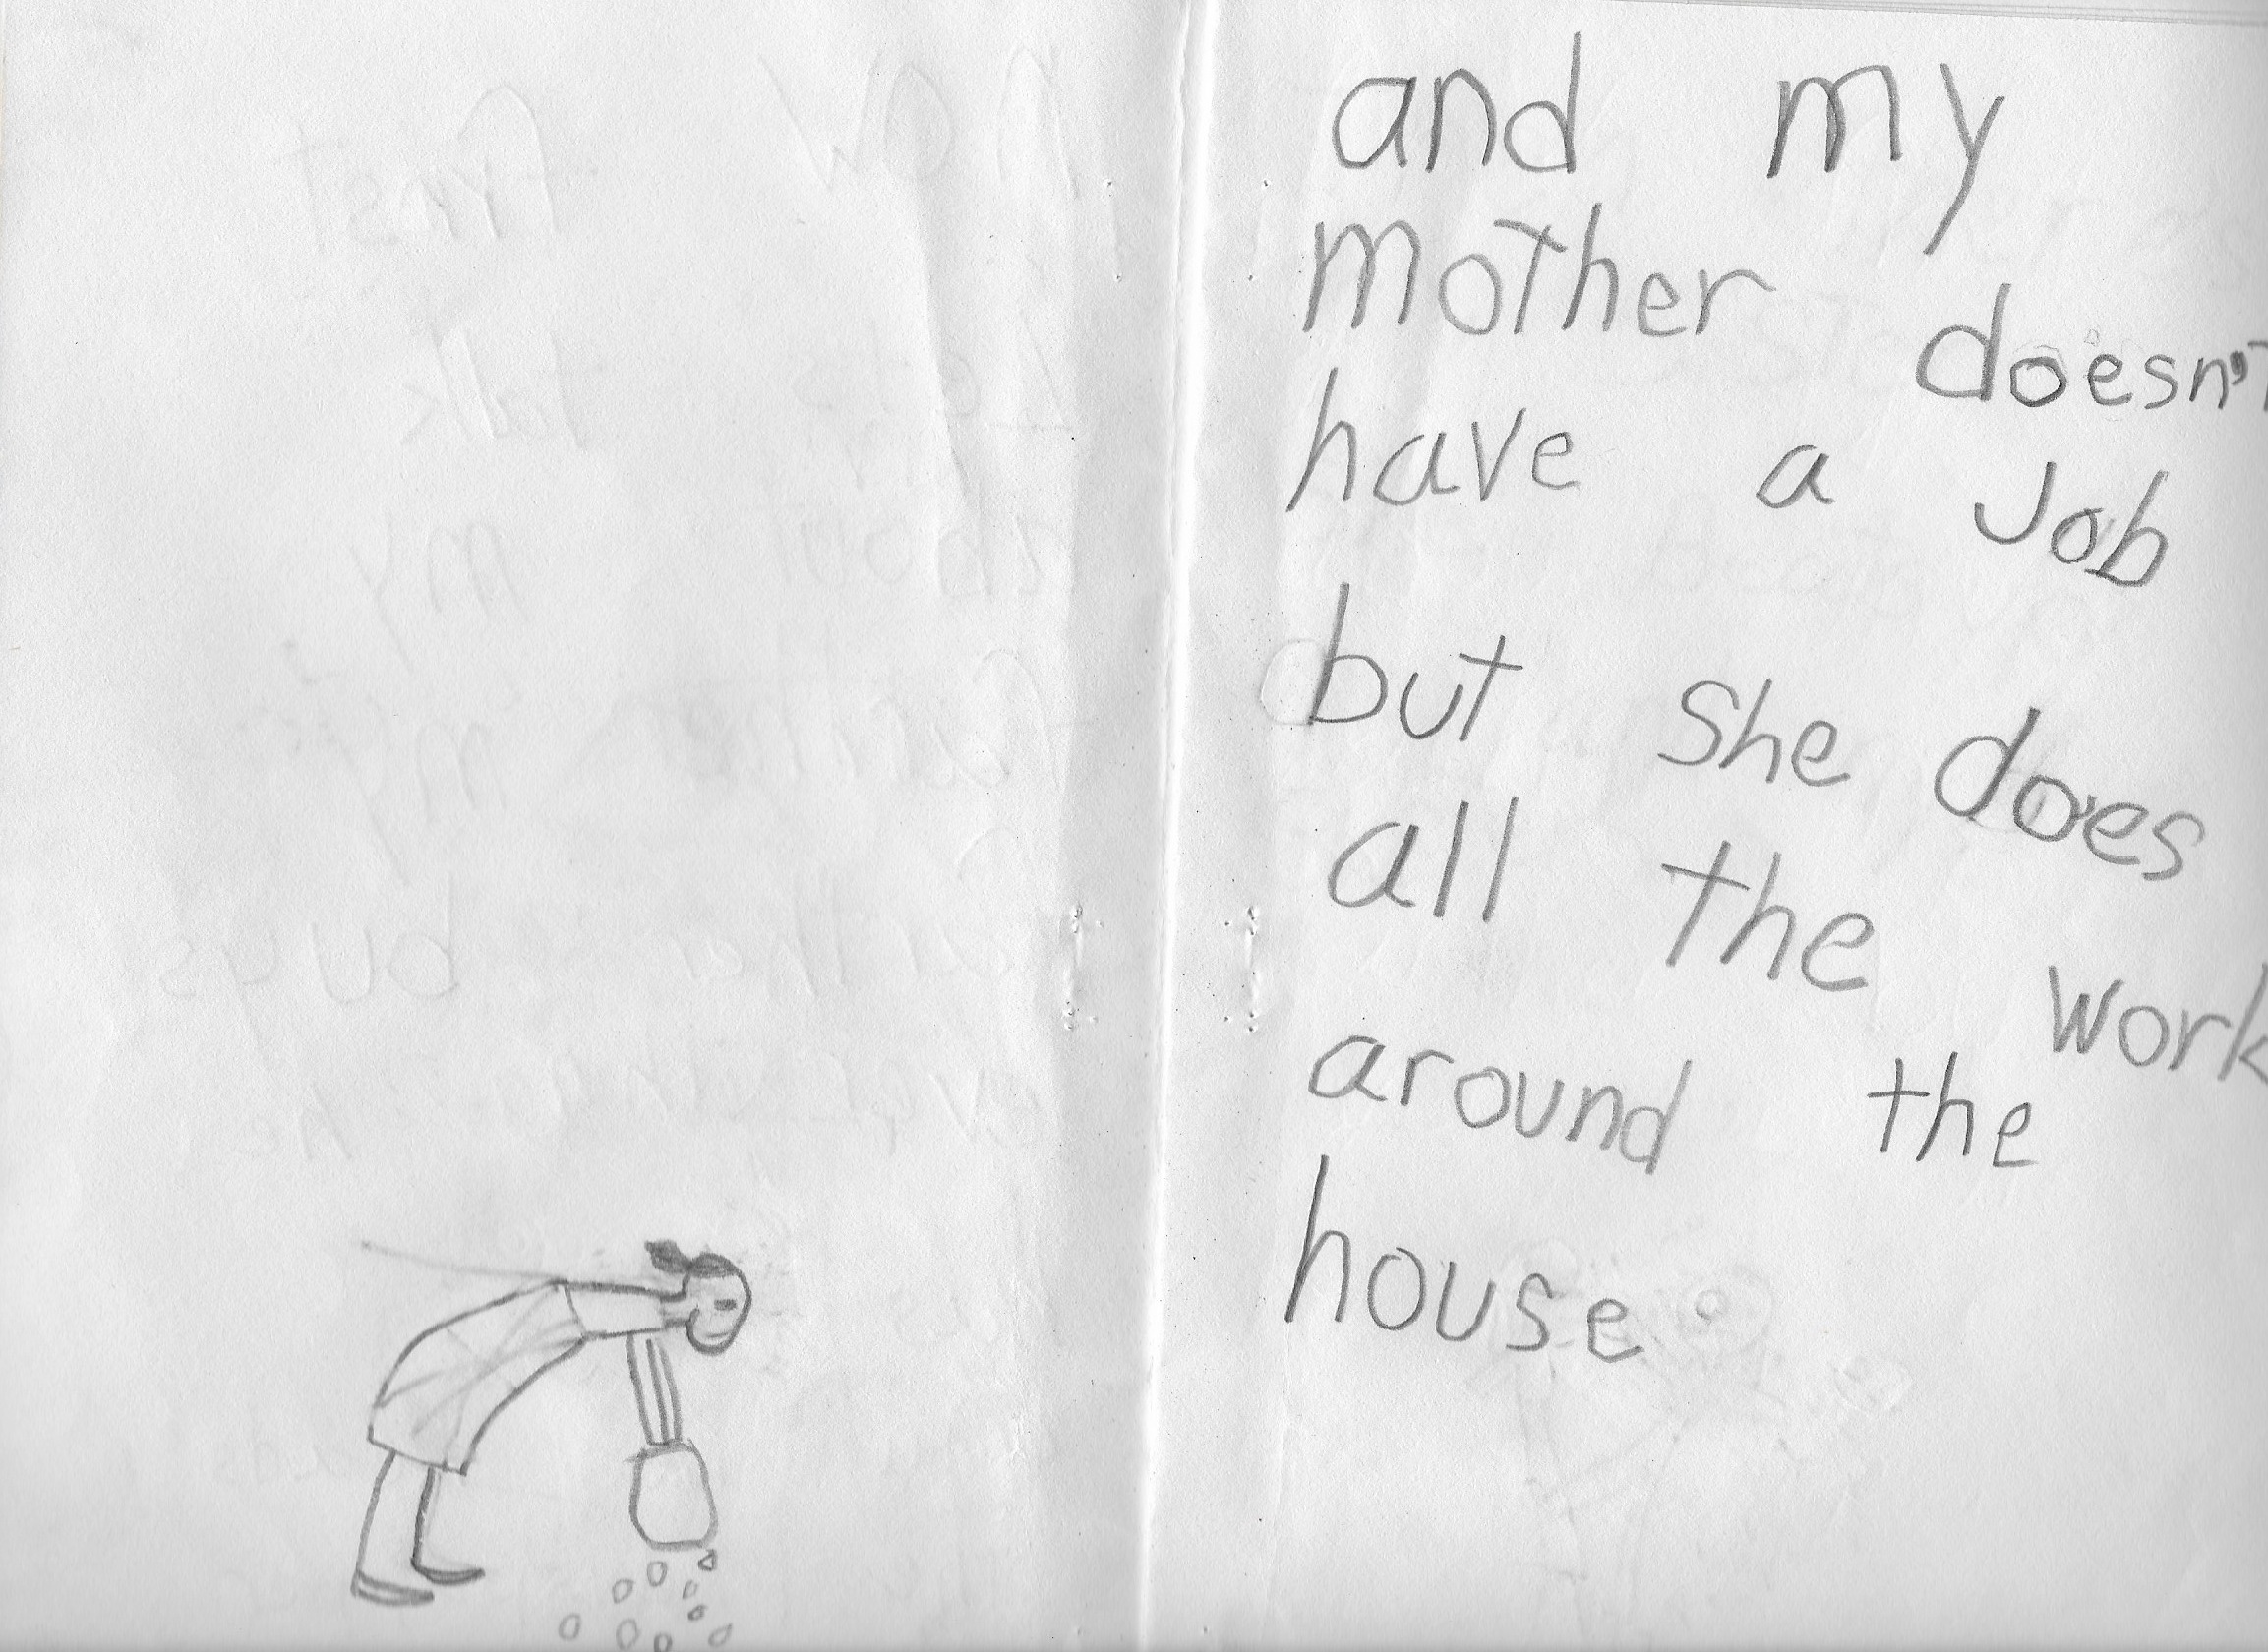 and my
mother doesn't
have a Job
but she does
all the work
around the
house